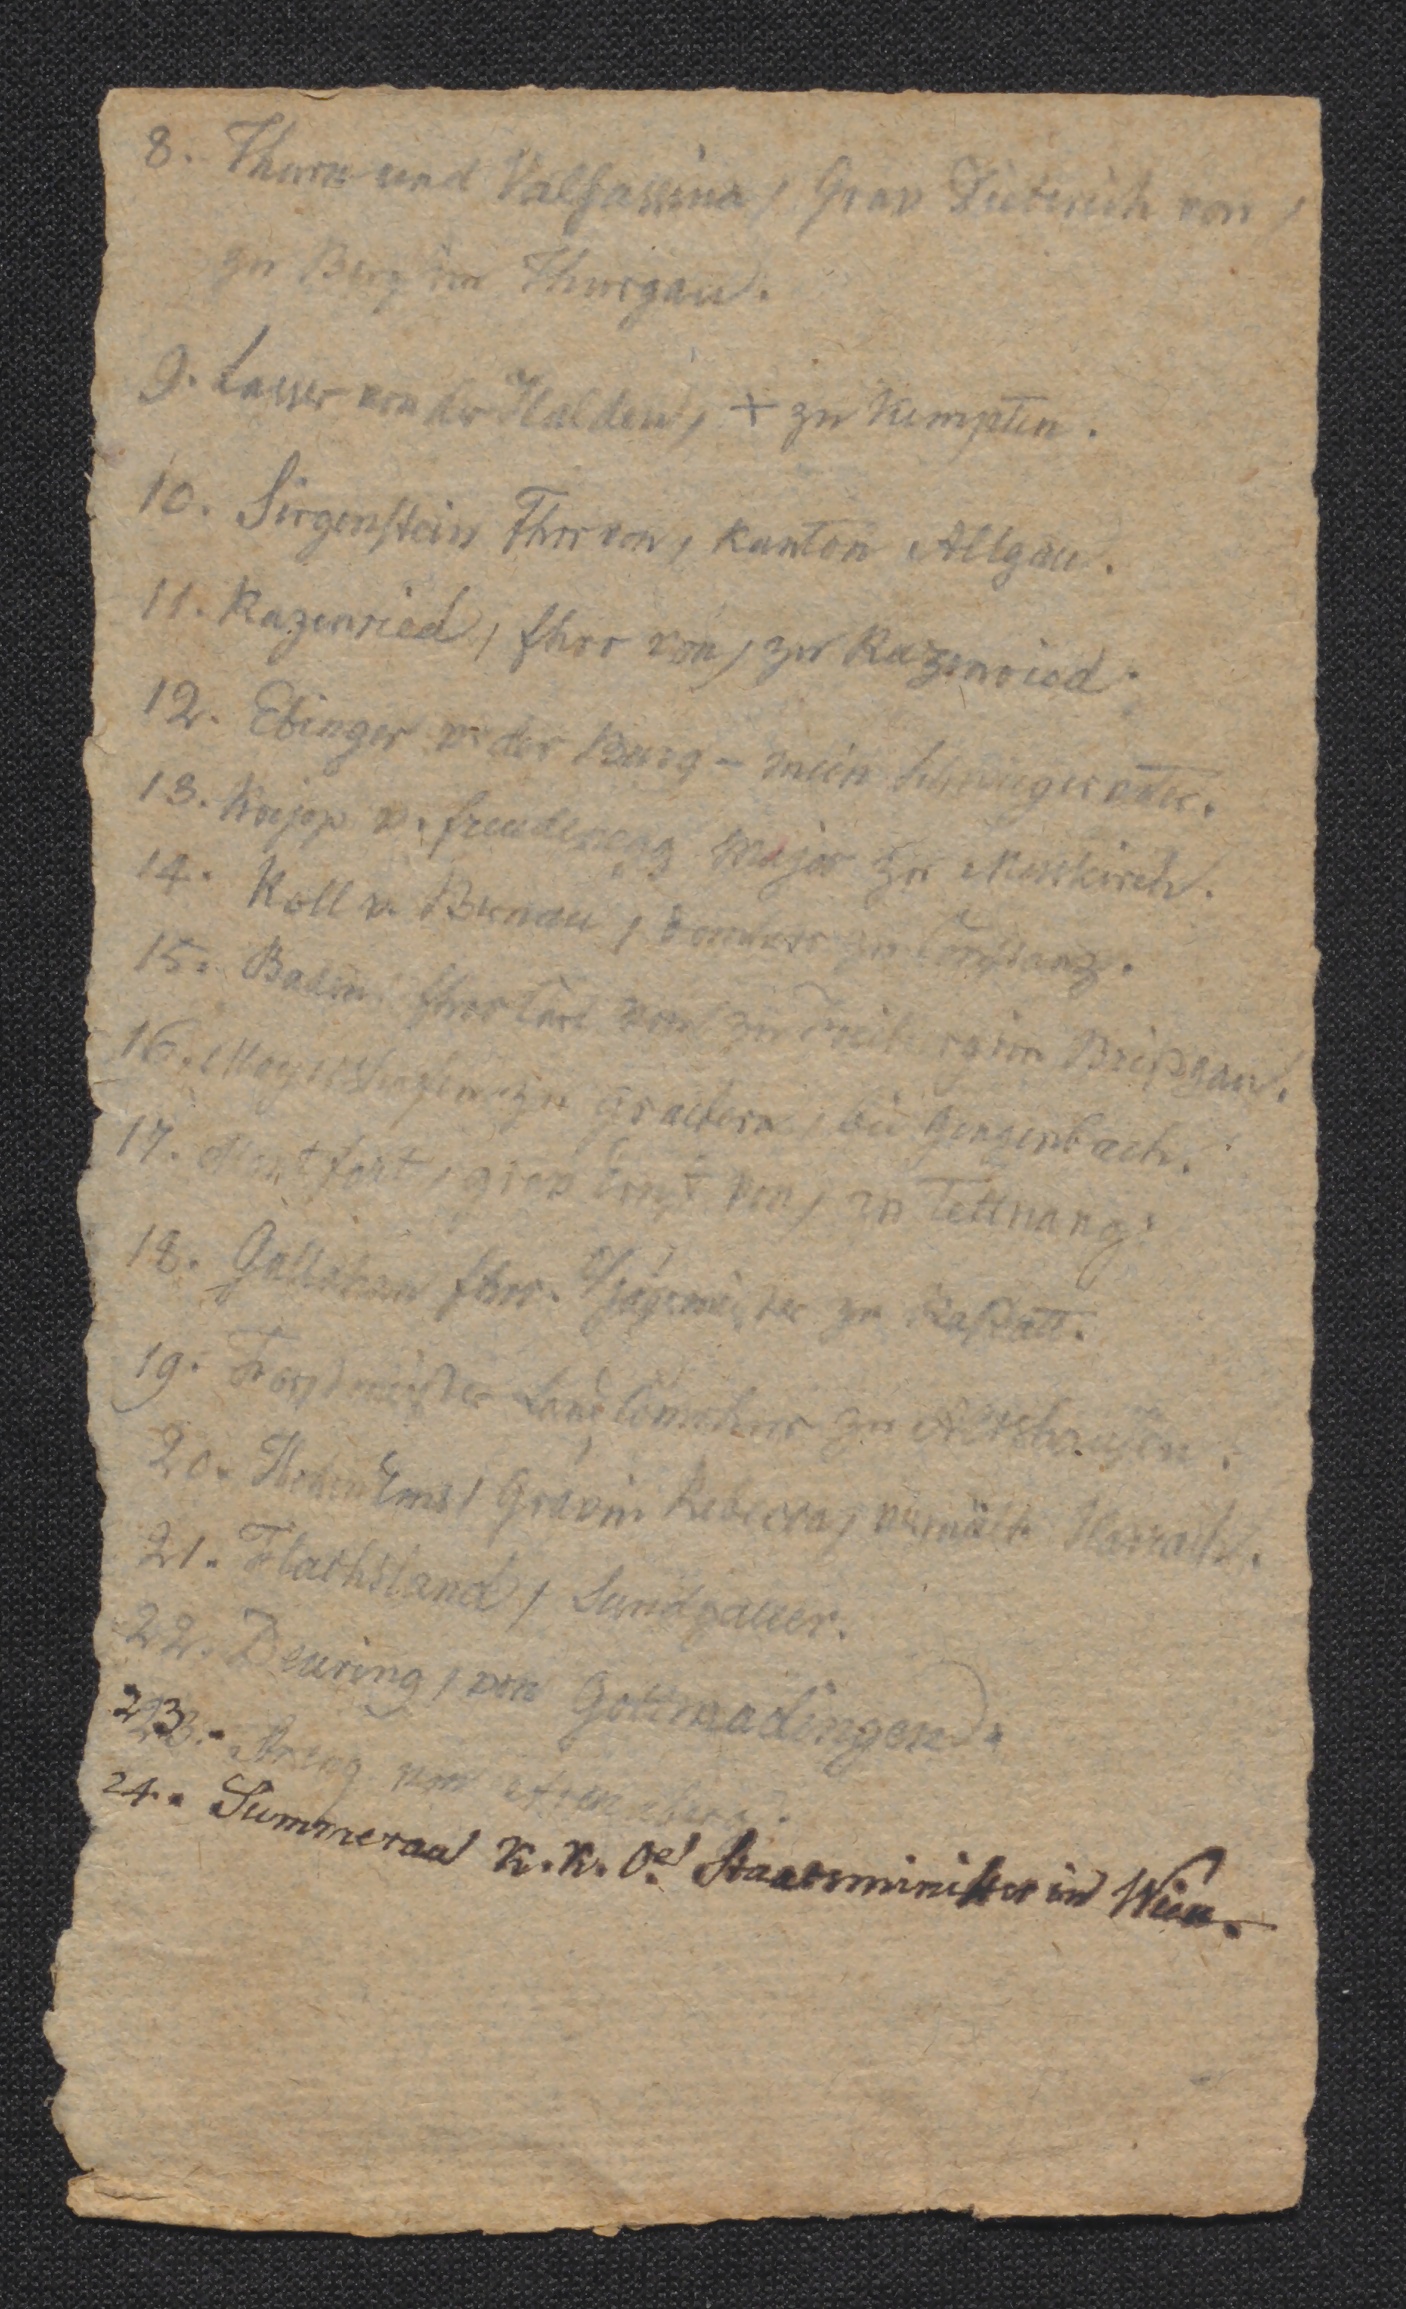 8. Thurn und Valsassina, Grav Dieterich von,
zu Berg im Thurgau.
9. Lasser von der Halden, + zu Kempten.
10. Sirgenstein Fhr von, Kanton Allgau.
11. Razenried, fhrr von, zu Razenried.
12. Ebinger v. der Burg – mein Schwiegervater.
13. v. freudenegg Major zu Messkirch.
14. Roll v. Bernau, Domherr zu Constanz.
15. Baden fhrr Carl von zu Freiburg im Brisgau.
16. zu bei Gengenbach.
17. Montfort, grav Ernst von, zu Tettnang.
18. fhrr. zu Rastatt.
19. Forstmeister zu Altshausen.
20. HohenEms, Gravin Rebecca, vermält Harrach.
21. Flachsland, Sundgauer.
22. Deuring, von Gottmadingen.
23. Streng von Arenenberg.
24. Summerau K. K. Staatsminister in Wien.